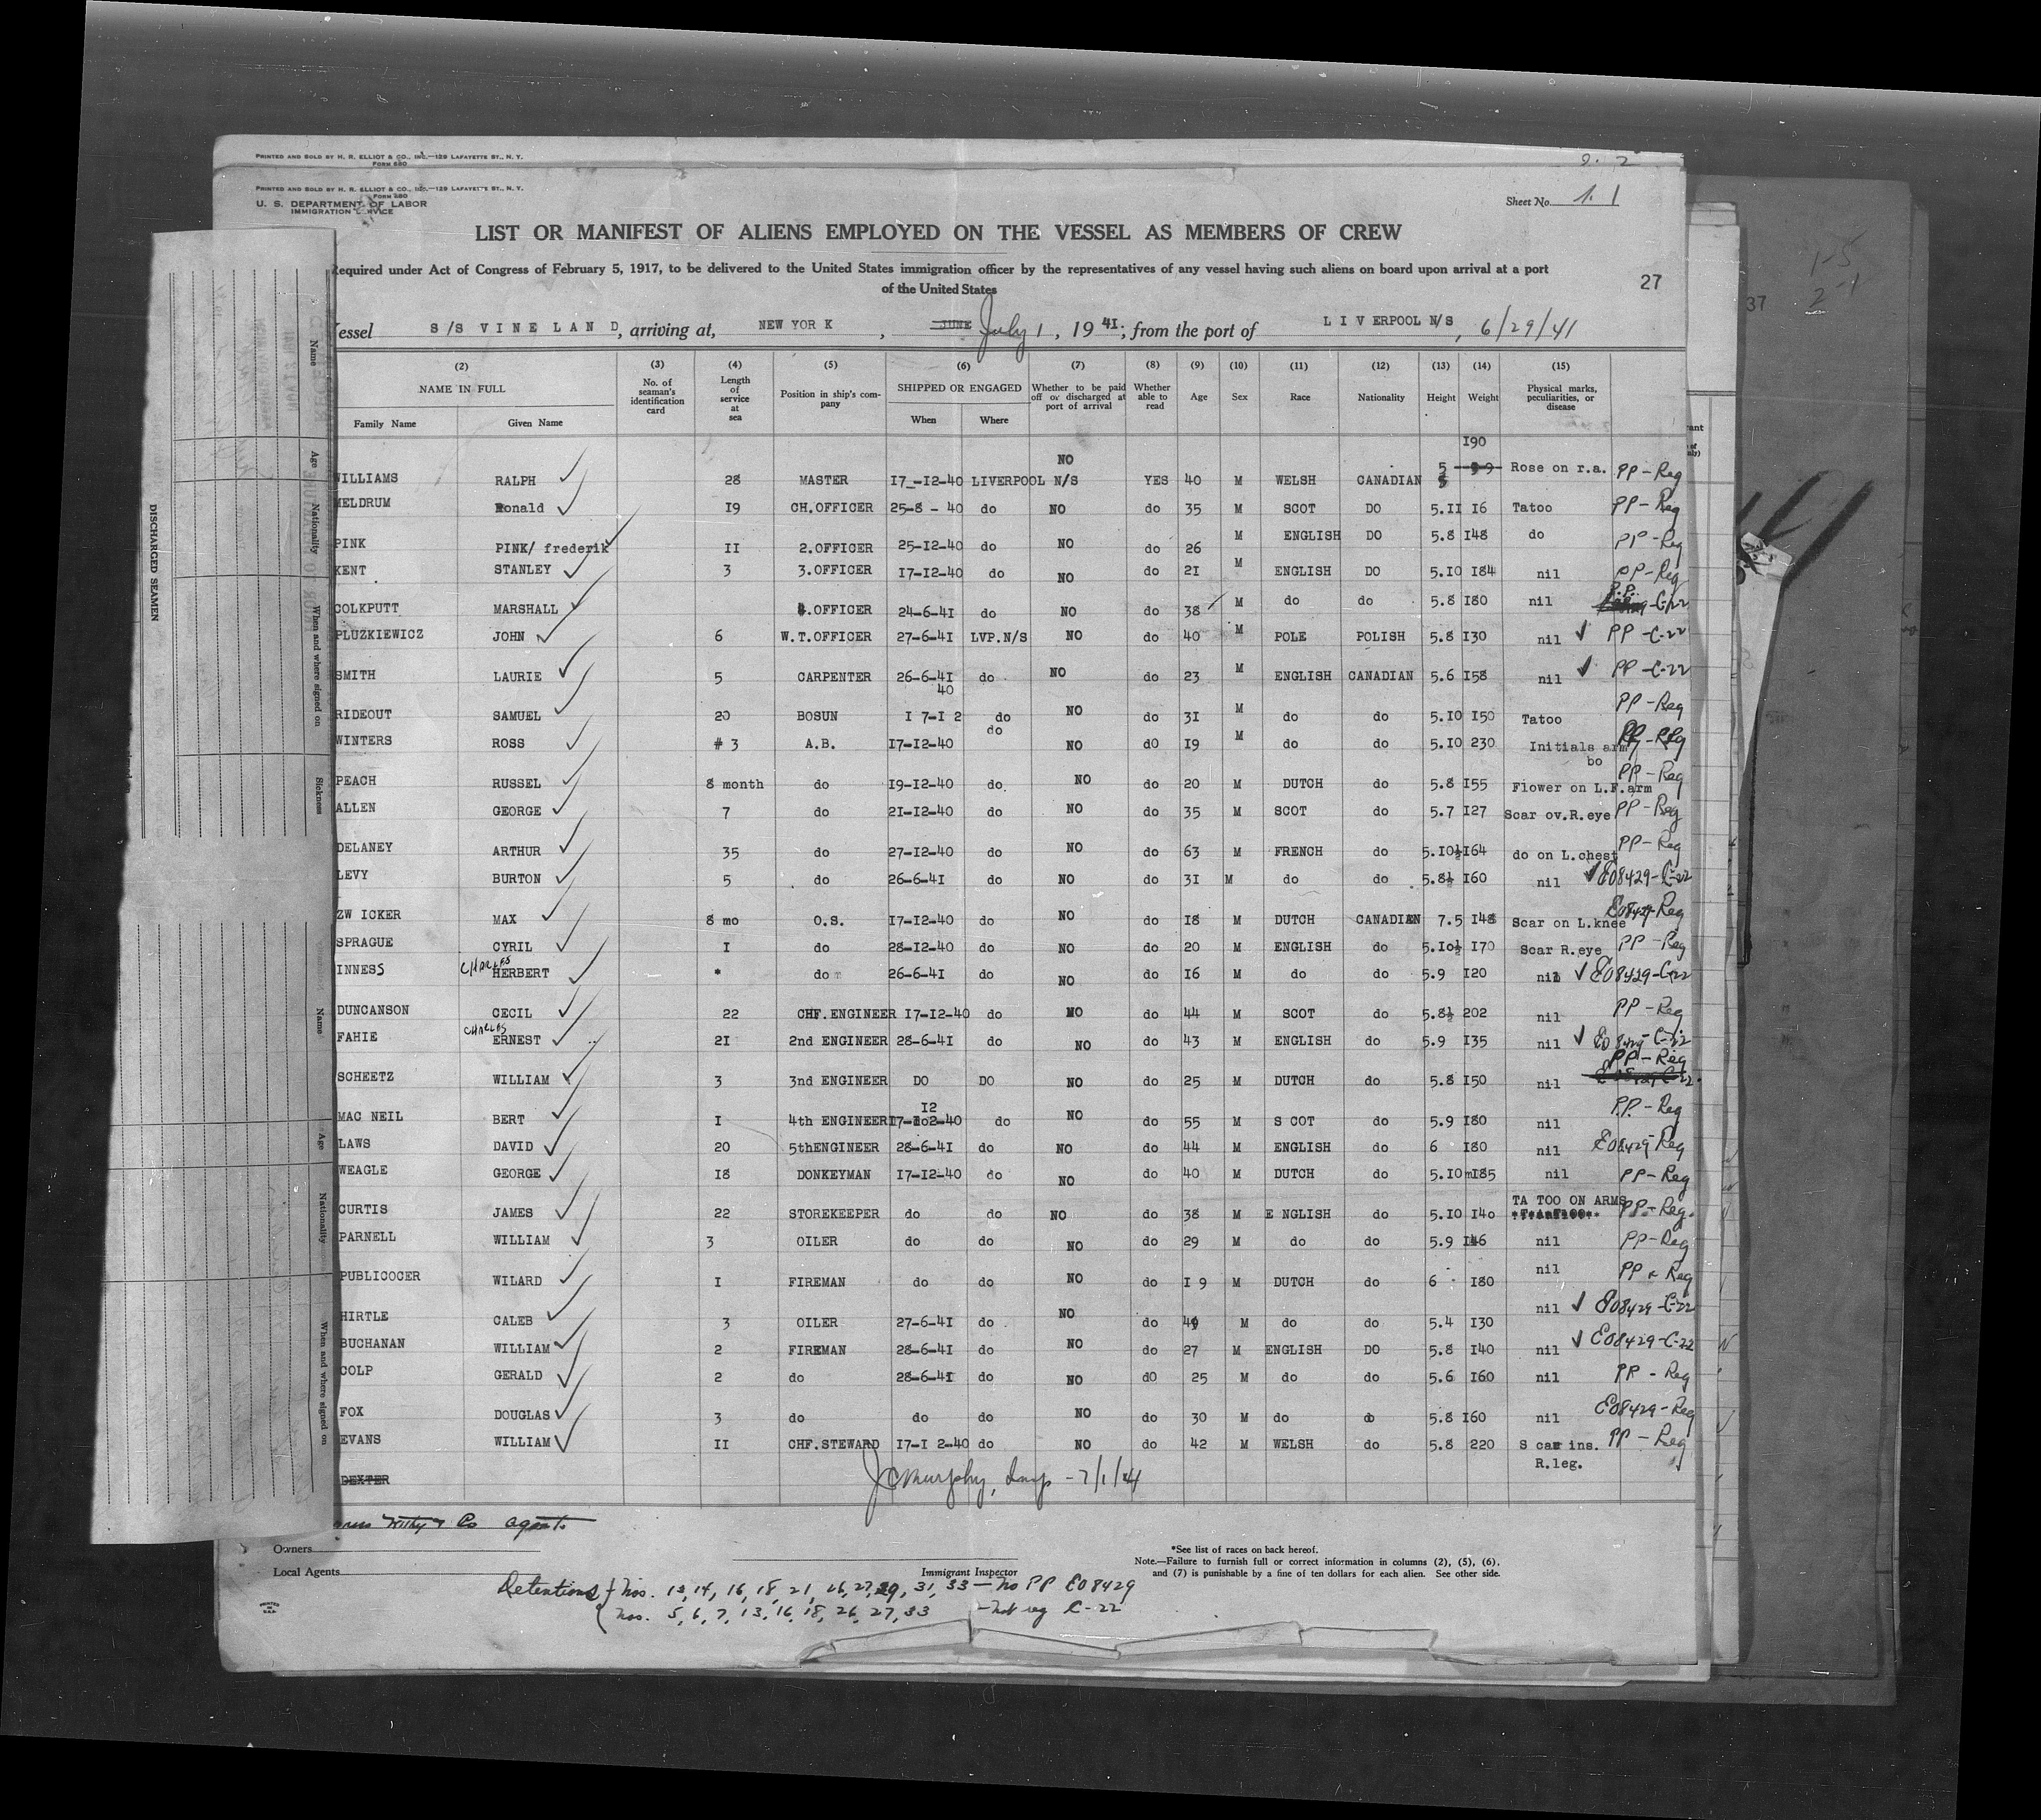 PRINTED AND SOLD BY H. R. ELLIOT & CO., INC.—129 LAFAYETTE ST., N. Y.
FORM 680
PRINTED AND SOLD BY H. R. ELLIOT & CO., INC.—129 LAFAYETTE ST., N. Y.
FORM 680
U. S. DEPARTMENT OF LABOR
IMMIGRATION SERVICE
Sheet No. 1. 1
LIST OR MANIFEST OF ALIENS EMPLOYED ON THE VESSEL AS MEMBERS OF CREW
Required under Act of Congress of February 5, 1917, to be delivered to the United States immigration officer by the representatives of any vessel having such aliens on board upon arrival at a port
of the United States
27
37
essel S/S VINELAND, arriving at, NEW YORK, JUNE July 1, 1941; from the port of LIVERPOOL N/S, 6/29/41
(2) (3) (4) (5) (6) (7) (8) (9) (10) (11) (12) (13) (14) (15)
NAME IN FULL No. of seaman's identification card Length of service at sea Position in ship's company SHIPPED OR ENGAGED Whether to be paid off or discharged at port of arrival Whether able to read Age Sex Race Nationality Height Weight Physical marks, peculiarities, or disease
Family Name Given Name When Where
WILLIAMS RALPH 28 MASTER 17_-12-40 LIVERPOOL N/S NO YES 40 M WELSH CANADIAN 5 190 Rose on r.a. PP-Reg
MELDRUM Ronald 19 CH.OFFICER 25-8 - 40 do NO do 35 M SCOT DO 5.11 16 Tatoo PP-Reg
PINK PINK/ frederik 11 2.OFFICER 25-12-40 do NO do 26 M ENGLISH DO 5.8 148 do PP-Reg
KENT STANLEY 3 3.OFFICER 17-12-40 do NO do 21 M ENGLISH DO 5.10 184 nil PP-Reg
COLKPUTT MARSHALL 4.OFFICER 24-6-41 do NO do 38 M do do 5.8 180 nil P.P. -C-22
PLUZKIEWICZ JOHN 6 W.T.OFFICER 27-6-41 LVP.N/S NO do 40 M POLE POLISH 5.8 130 nil PP-C-22
SMITH LAURIE 5 CARPENTER 26-6-41 do NO do 23 M ENGLISH CANADIAN 5.6 158 nil PP-C-22
RIDEOUT SAMUEL 20 BOSUN 1 7-1 2 40 do NO do 31 M do do 5.10 150 Tatoo PP-Reg
WINTERS ROSS # 3 A.B. 17-12-40 do NO dO 19 M do do 5.10 230 Initials arm bo PP-Reg
PEACH RUSSEL 8 month do 19-12-40 do. NO do 20 M DUTCH do 5.8 155 Flower on L.F.arm PP-Reg
ALLEN GEORGE 7 do 21-12-40 do NO do 35 M SCOT do 5.7 127 Scar ov.R.eye PP-Reg
DELANEY ARTHUR 35 do 27-12-40 do NO do 63 M FRENCH do 5.10½ 164 do on L.chest PP-Reg
LEVY BURTON 5 do 26-6-41 do NO do 31 M do do 5.8½ 160 nil E08429-C-22
ZW ICKER MAX 8 mo O.S. 17-12-40 do NO do 18 M DUTCH CANADIEN 7.5 148 Scar on L.knee E08429-Reg
SPRAGUE CYRIL 1 do 28-12-40 do NO do 20 M ENGLISH do 5.10½ 170 Scar R.eye PP-Reg
INNESS CHARLES HERBERT * do 26-6-41 do NO do 16 M do do 5.9 120 nil E08429-C-22
DUNCANSON CECIL 22 CHF.ENGINEER 17-12-40 do NO do 44 M SCOT do 5.8½ 202 nil PP-Reg
FAHIE CHARLES ERNEST 21 2nd ENGINEER 28-6-41 do NO do 43 M ENGLISH do 5.9 135 nil E08429-C-22
SCHEETZ WILLIAM 3 3nd ENGINEER DO DO NO do 25 M DUTCH do 5.8 150 nil PP-Reg E08429-C-22.
MAC NEIL BERT 1 4th ENGINEER 17-12-40 do NO do 55 M S COT do 5.9 180 nil P.P.-Reg
LAWS DAVID 20 5thENGINEER 28-6-41 do NO do 44 M ENGLISH do 6 180 nil E08429-Reg
WEAGLE GEORGE 18 DONKEYMAN 17-12-40 do NO do 40 M DUTCH do 5.10 185 nil PP-Reg
CURTIS JAMES 22 STOREKEEPER do do NO do 38 M E NGLISH do 5.10 140 TA TOO ON ARMS PP-Reg.
PARNELL WILLIAM 3 OILER do do NO do 29 M do do 5.9 146 nil PP-Reg
PUBLICOCER WILARD 1 FIREMAN do do NO do 1 9 M DUTCH do 6 180 nil PP-Reg
HIRTLE CALEB 3 OILER 27-6-41 do NO do 49 M do do 5.4 130 nil E08429-C-22
BUCHANAN WILLIAM 2 FIREMAN 28-6-41 do NO do 27 M ENGLISH DO 5.8 140 nil E08429-C-22
COLP GERALD 2 do 28-6-41 do NO dO 25 M do do 5.6 160 nil PP - Reg
FOX DOUGLAS 3 do do do NO do 30 M do do 5.8 160 nil E08429-Reg
EVANS WILLIAM 11 CHF.STEWARD 17-1 2-40 do NO do 42 M WELSH do 5.8 220 S car ins. R.leg. PP - Reg
DEXTER
J C Murphy, Insp - 7/1/41
Withy & Co agents
Owners
Local Agents
Immigrant Inspector
*See list of races on back hereof.
Note.—Failure to furnish full or correct information in columns (2), (5), (6),
and (7) is punishable by a fine of ten dollars for each alien. See other side.
Detentions { Nos. 13, 14, 16, 18, 21, 26, 27, 29, 31, 33 — no PP E08429
{ Nos. 5, 6, 7, 13, 16, 18, 26, 27, 33 — not reg C-22
DISCHARGED SEAMEN
Name Age Nationality When and where signed on Sickness
Name Age Nationality When and where signed on
1-5
2-1